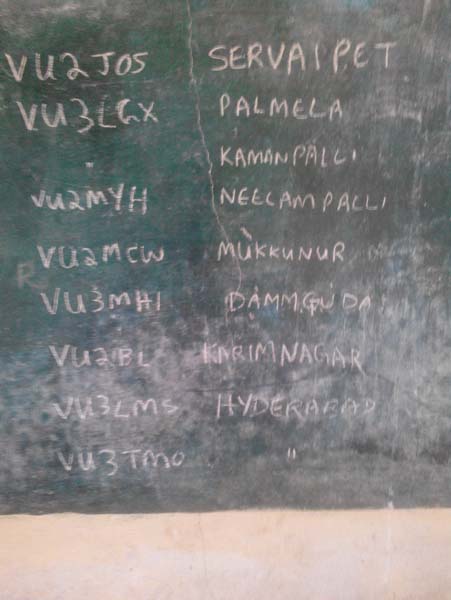 VU2JOS SERVAIPET
VU3LGX PALMELA
" KAMANPALLI
VU2MYH NEELAMPALLI
VU2MCW MUKKUNUR
VU3MHI DAMMGUDA
VU2BL KARIMNAGAR
VU3LMS HYDERABAD
VU3TMO "